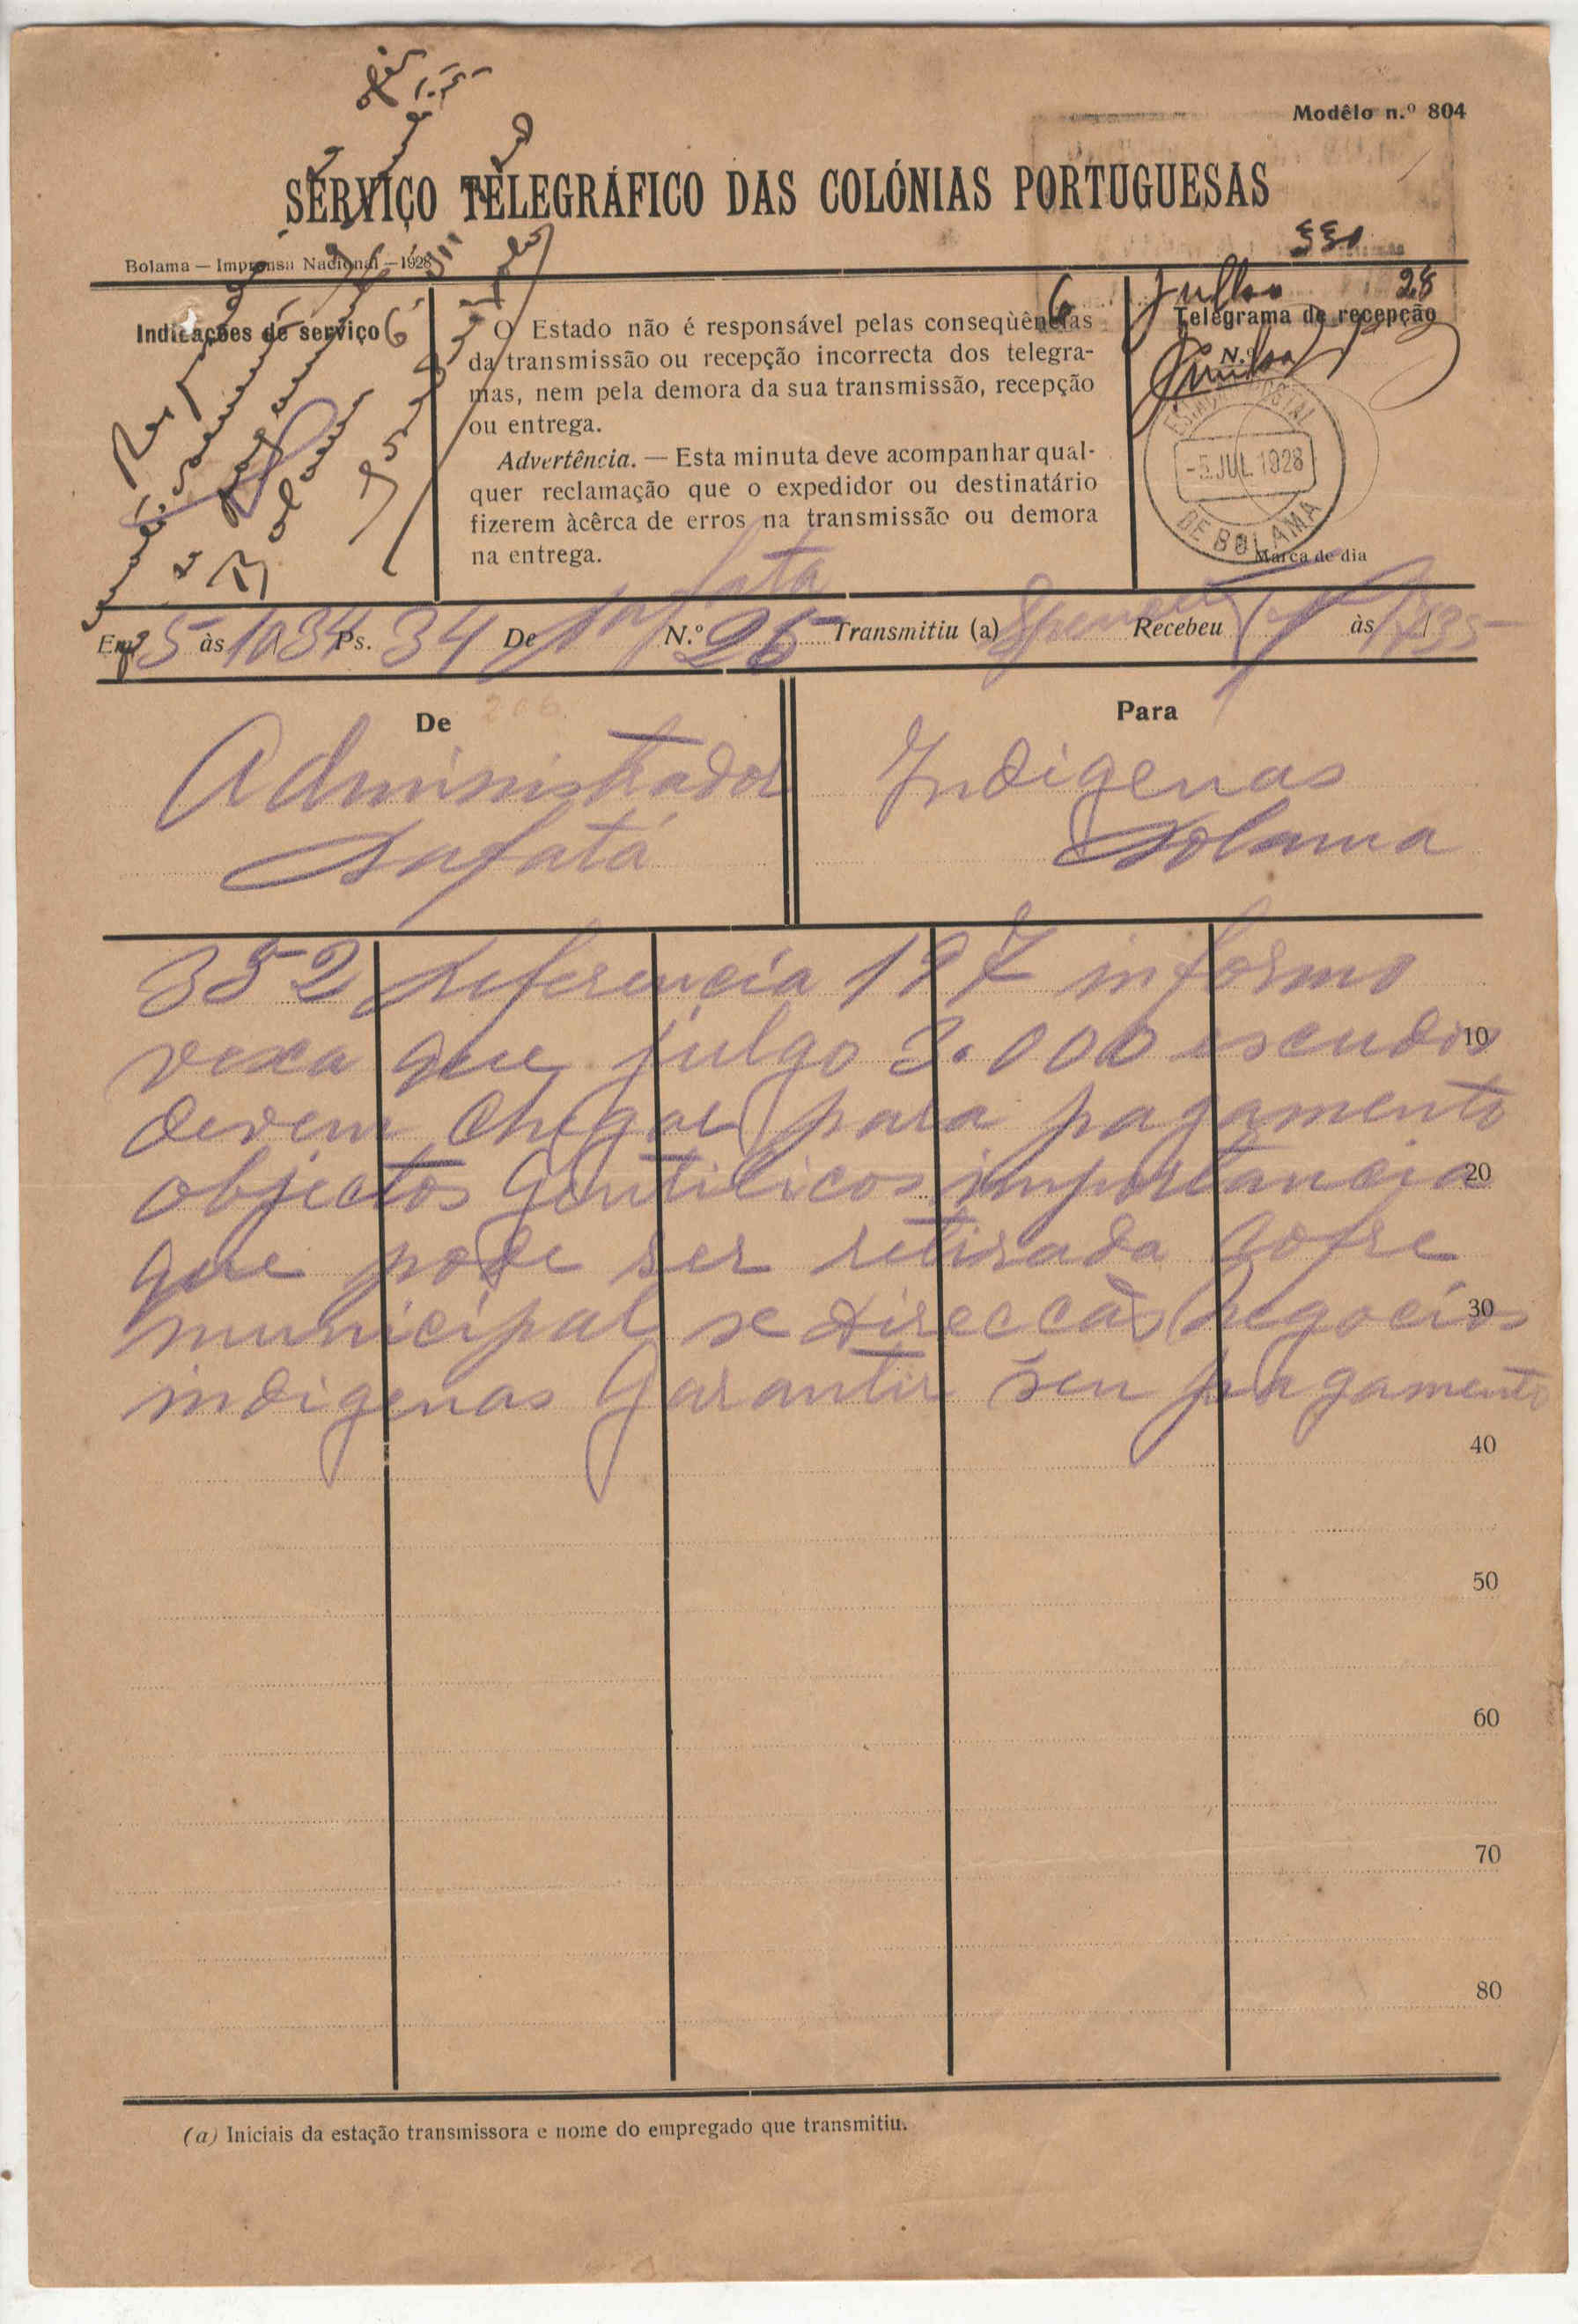 Modêlo n.º 804
SERVIÇO TELEGRÁFICO DAS COLÓNIAS PORTUGUESAS
Bolama — Imprensa Nacional — 1928
550
6 Julho 28
Indicações de serviço
O Estado não é responsável pelas conseqùências
da transmissão ou recepção incorrecta dos telegra-
mas, nem pela demora da sua transmissão, recepção
ou entrega.
Advertência. — Esta minuta deve acompanhar qual-
quer reclamação que o expedidor ou destinatário
fizerem àcêrca de erros na transmissão ou demora
na entrega.
Telegrama de recepção
N.º
-5.JUL.1928
DE BOLAMA
Marca de dia
Em 5 às 1034 Ps. 34 De Bafata N.º 26 Transmitiu (a) Recebeu às 1735
De
Administrador
Bafatá
Para
Indigenas
Bolama
352 referencia 197 informo
vexa que julgo 3.000 escudos
devem chegar para pagamento
objectos gentilicos importancia
que pode ser retirada cofre
municipal se direccão negocios
indigenas garantir seu pagamento
10
20
30
40
50
60
70
80
(a) Iniciais da estação transmissora e nome do empregado que transmitiu.